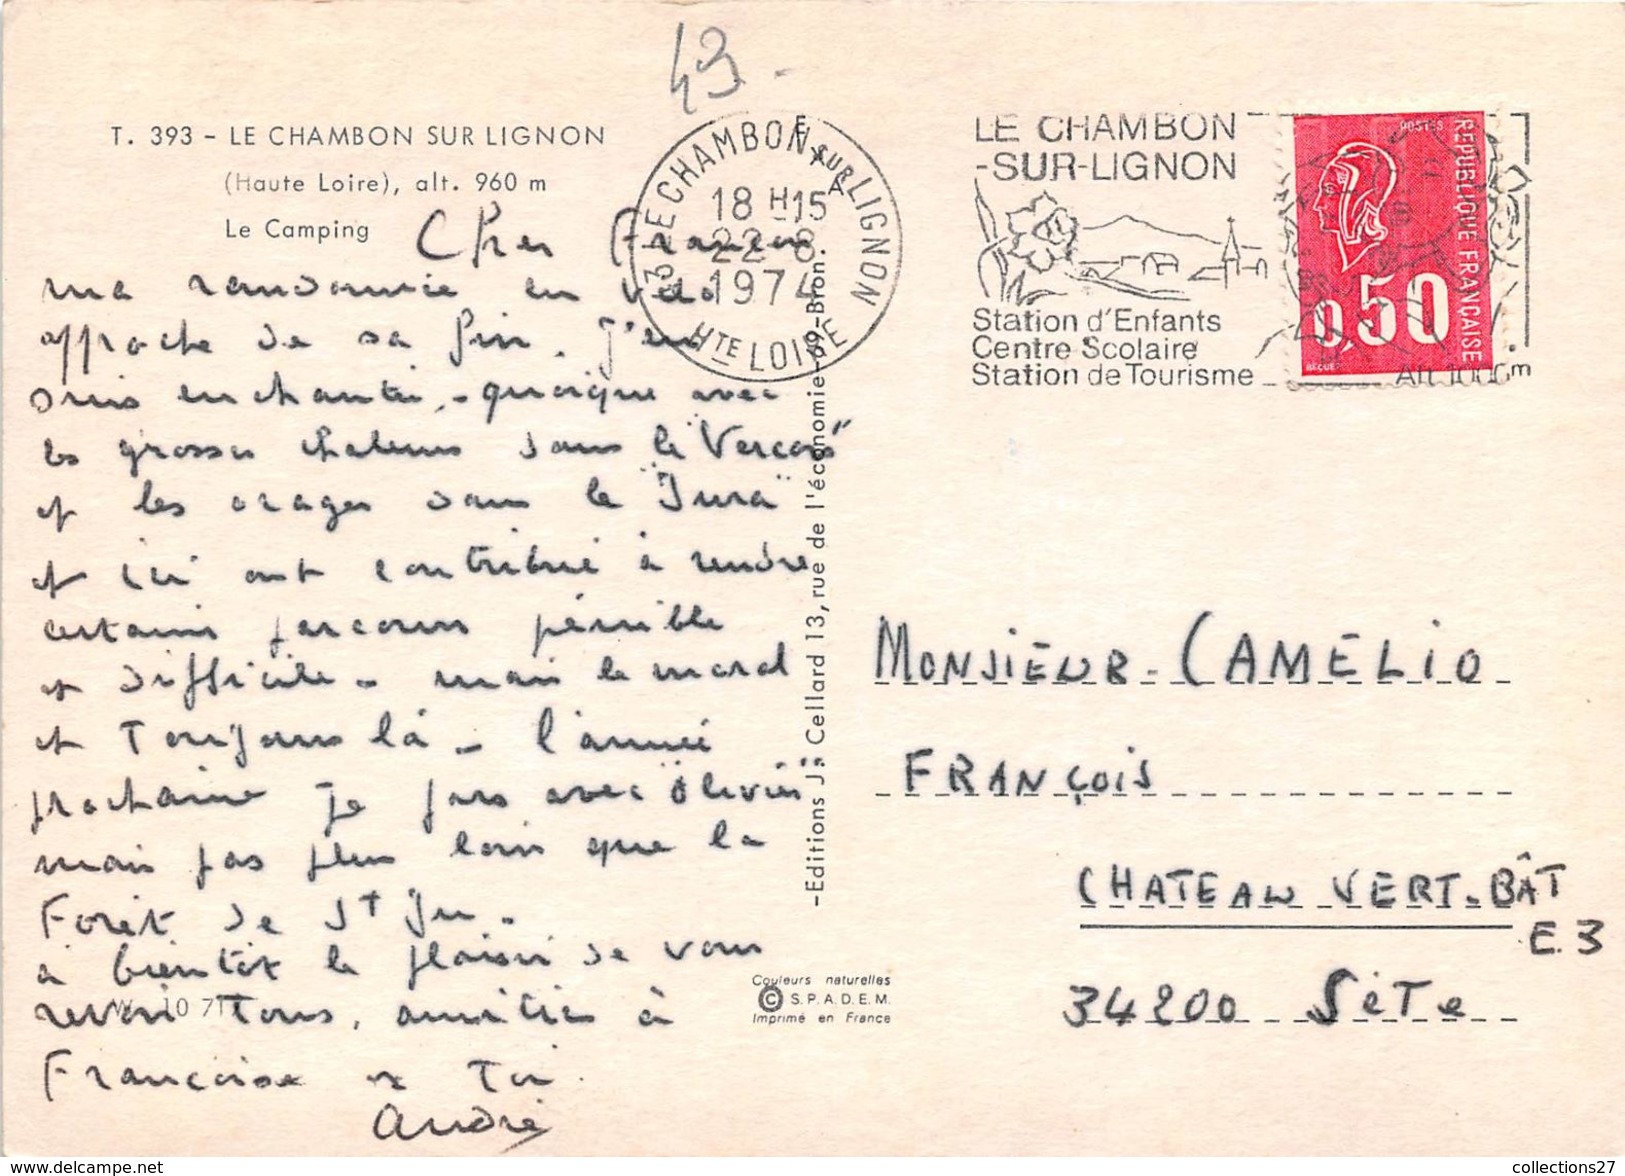 43 -
T. 393 - LE CHAMBON SUR LIGNON
(Haute Loire), alt. 960 m
Le Camping
43 LE CHAMBON SUR LIGNON
18 H 15
22-8
1974
HTE LOIRE
LE CHAMBON
-SUR-LIGNON
Station d'Enfants
Centre Scolaire
Station de Tourisme
Alt. 1000 m
POSTES
REPUBLIQUE FRANÇAISE
0,50
BEQUET
Cher François
ma randonnée en vélo
approche de sa fin. j'en
suis enchanté, - quoique avec
les grosses chaleurs dans le "Vercors"
et les orages dans le "Jura"
et ici ont contribué à rendre
certains parcours pénible
et difficile - mais le moral
et Toujours là - l'année
prochaine je pars avec "Olivier"
mais pas plus loin que la
Forêt de St
à bientôt le plaisir de vous
revoir Tous, amitiés à
Françoise et Toi
André
-Editions J. Cellard 13, rue de l'économie-69-Bron.
Couleurs naturelles
© S.P.A.D.E.M.
Imprimé en France
MONSIEUR - CAMELIO
FRANÇOIS
CHATEAU VERT-BÂT
E.3
34200 SÈTE
collections27